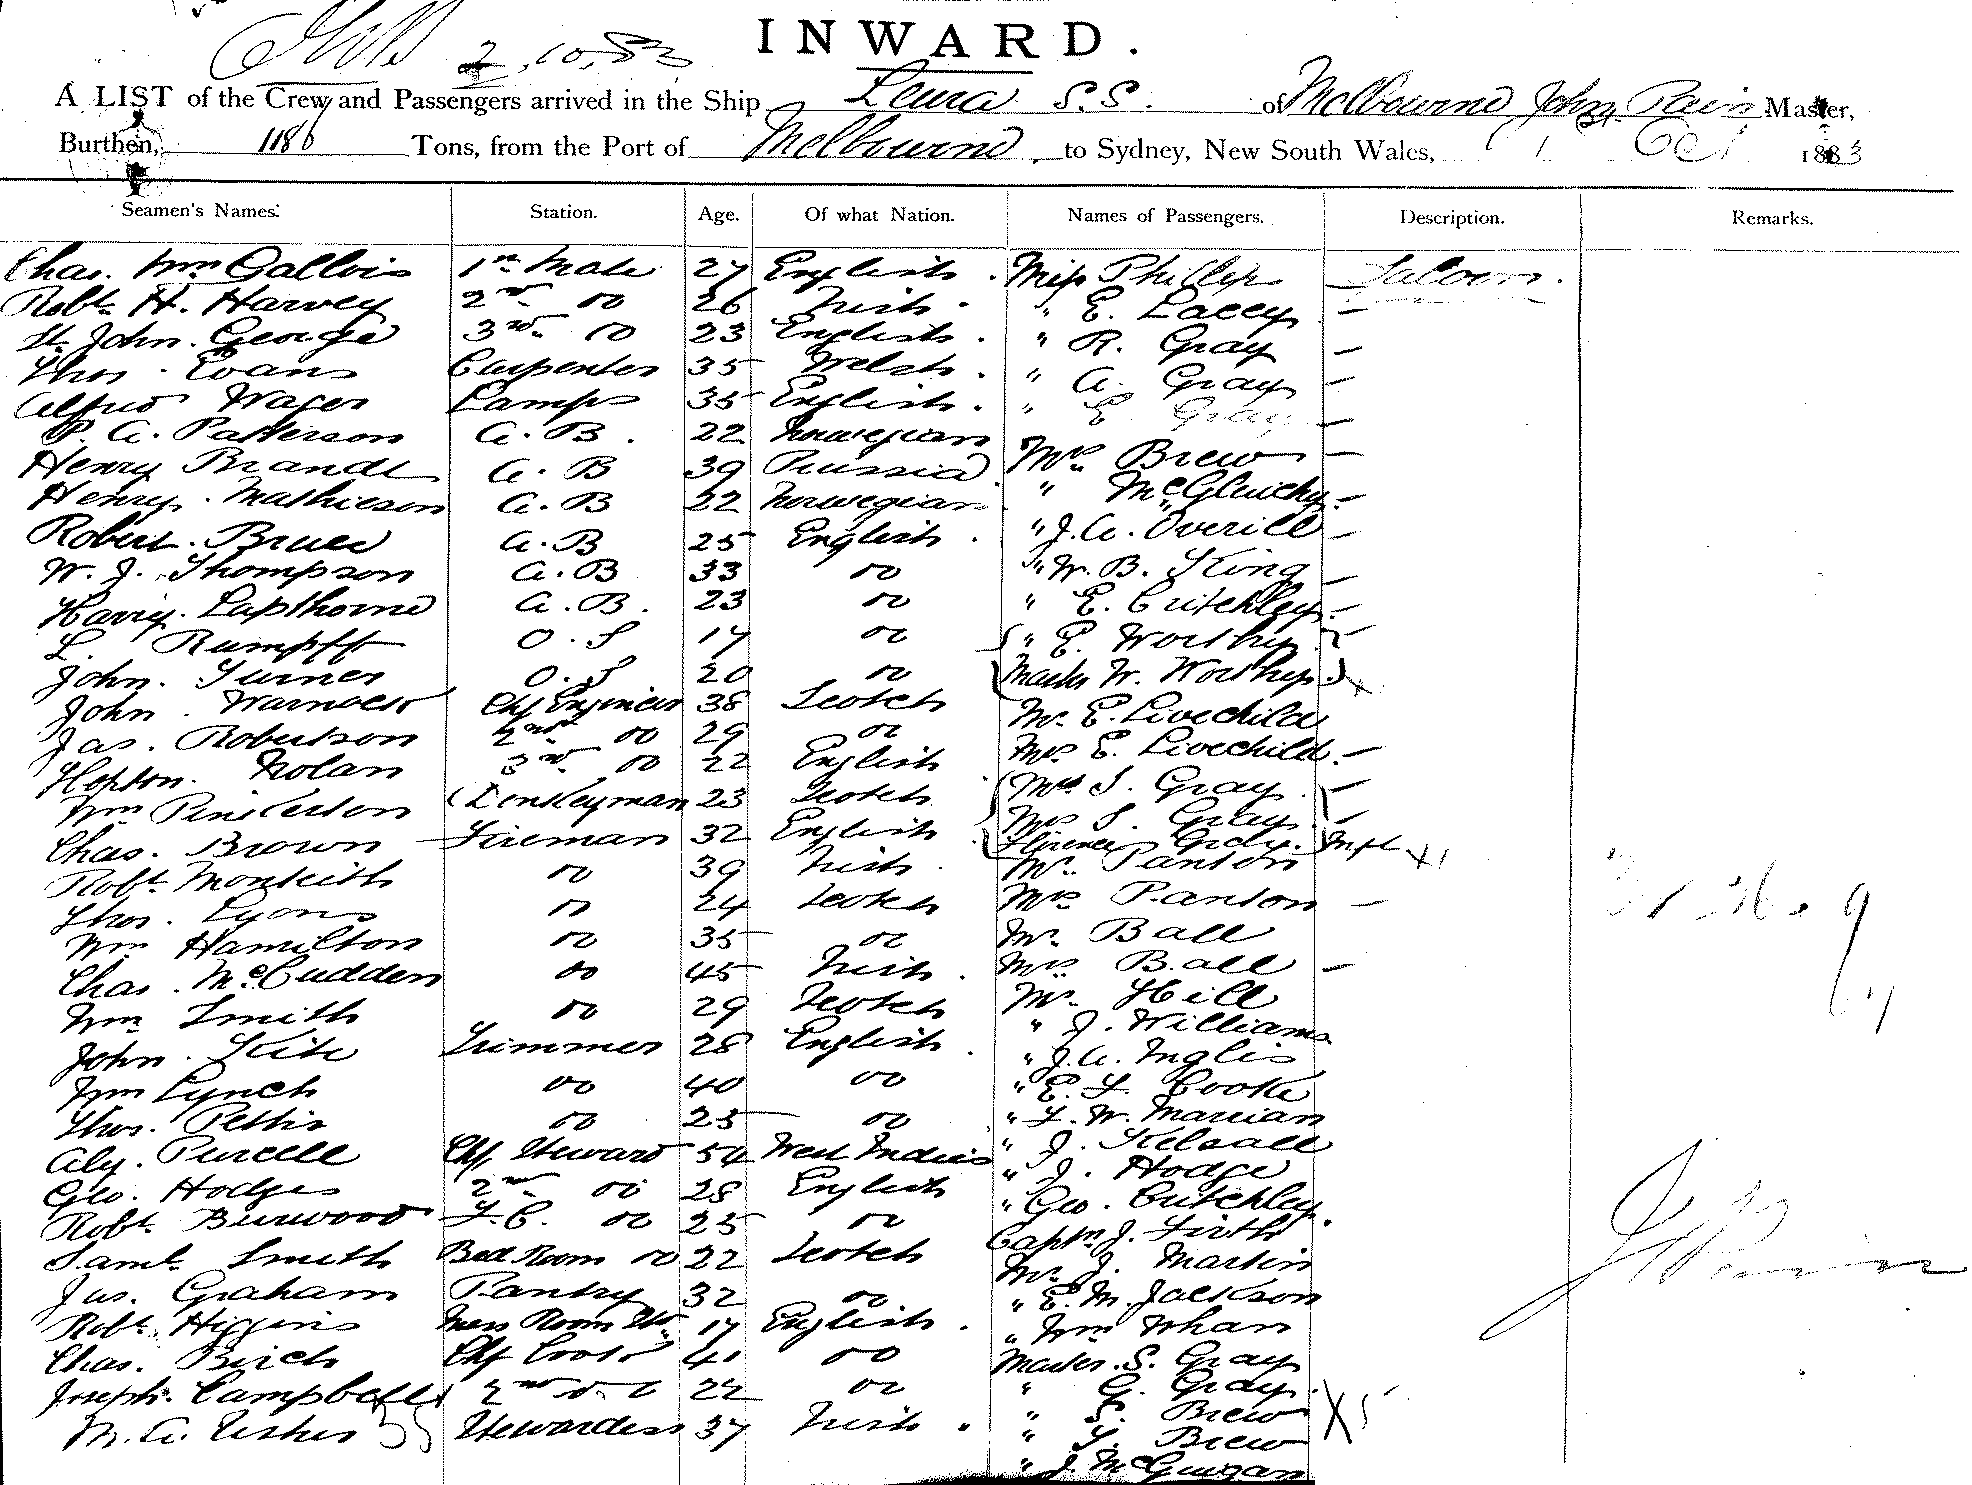 2.10.83
INWARD.
A LIST of the Crew and Passengers arrived in the Ship Leura S.S. of Melbourne John Pain Master,
Burthen, 1186 Tons, from the Port of Melbourne to Sydney, New South Wales, 1 Oct 1883
Seamen's Names. Station. Age. Of what Nation. Names of Passengers. Description. Remarks.
Chas. Wm Gallois 1st Mate 27 English Miss Phillips Saloon.
Robt. H. Harvey 2nd do 26 Irish " E. Lacey —
St. John. George 3rd do 23 English " R. Gray —
Thos. Evans Carpenter 35 Welsh " A. Gray —
Alfred Wager Lamps 35 English " E. Gray —
P. A. Patterson A.B. 22 Norwegian Mrs Brew —
Henry Brandt A.B 39 Russia " —
Henry. Mathieson A.B 22 Norwegian " J. A. Overill —
Robert. Bruce A.B 25 English " W. B. King —
W. J. Thompson A.B 33 do " E. Critchley —
Harry. Lapthorne A.B. 23 do " E. Worthy
L. Rumpff O.S 17 do Master W. Worthy x
John. Turner O.S 20 do Mr E. Livechild
John. Warnock Chf Engineer 38 Scotch Mrs E. Livechild —
Jas. Robertson 2nd do 29 do Mrs S. Gray —
Hopton. Nolan 3rd do 22 English S. Gray —
Wm Pinkerton Donkeyman 23 Scotch Florence Gray. Inft x1
Chas. Brown Fireman 32 English Mr. Panton
Robt. Monkeith do 39 Irish Mrs Panton —
Thos. Lyons do 24 Scotch Mr. Ball
Wm Hamilton do 35 do Mrs Ball —
Chas. McCudden do 45 Irish Mr. Hill
Wm Smith do 29 Scotch " J. Williams
John. Kite Trimmer 28 English " J. A. Inglis
Wm Lynch do 40 do " E. F. Cooke
Thos. Pettis do 25 do " F. W. Marrian
Aly. Purcell Chf. Steward 54 West Indies " J. Kelsall
Geo. Hodges 2nd do 28 English " J. Hodge
Robt. Burwood F.C. do 25 do " Geo. Critchley.
Saml. Smith Bed Room do 22 Scotch Captn J. Firth
Jas. Graham Pantry 32 do Mr. J. Martin
Robt. Higgins Mess Room Std. 17 English " E. M. Jackson
Chas. Birch Chf Cook 41 do " Wm Whan
Joseph. Campbell 2nd do 22 do Master. S. Gray
M. A. Usher Stewardess 37 Irish " G. Gray.
" S. Brew X5
" Brew
" J. McGuigan
35